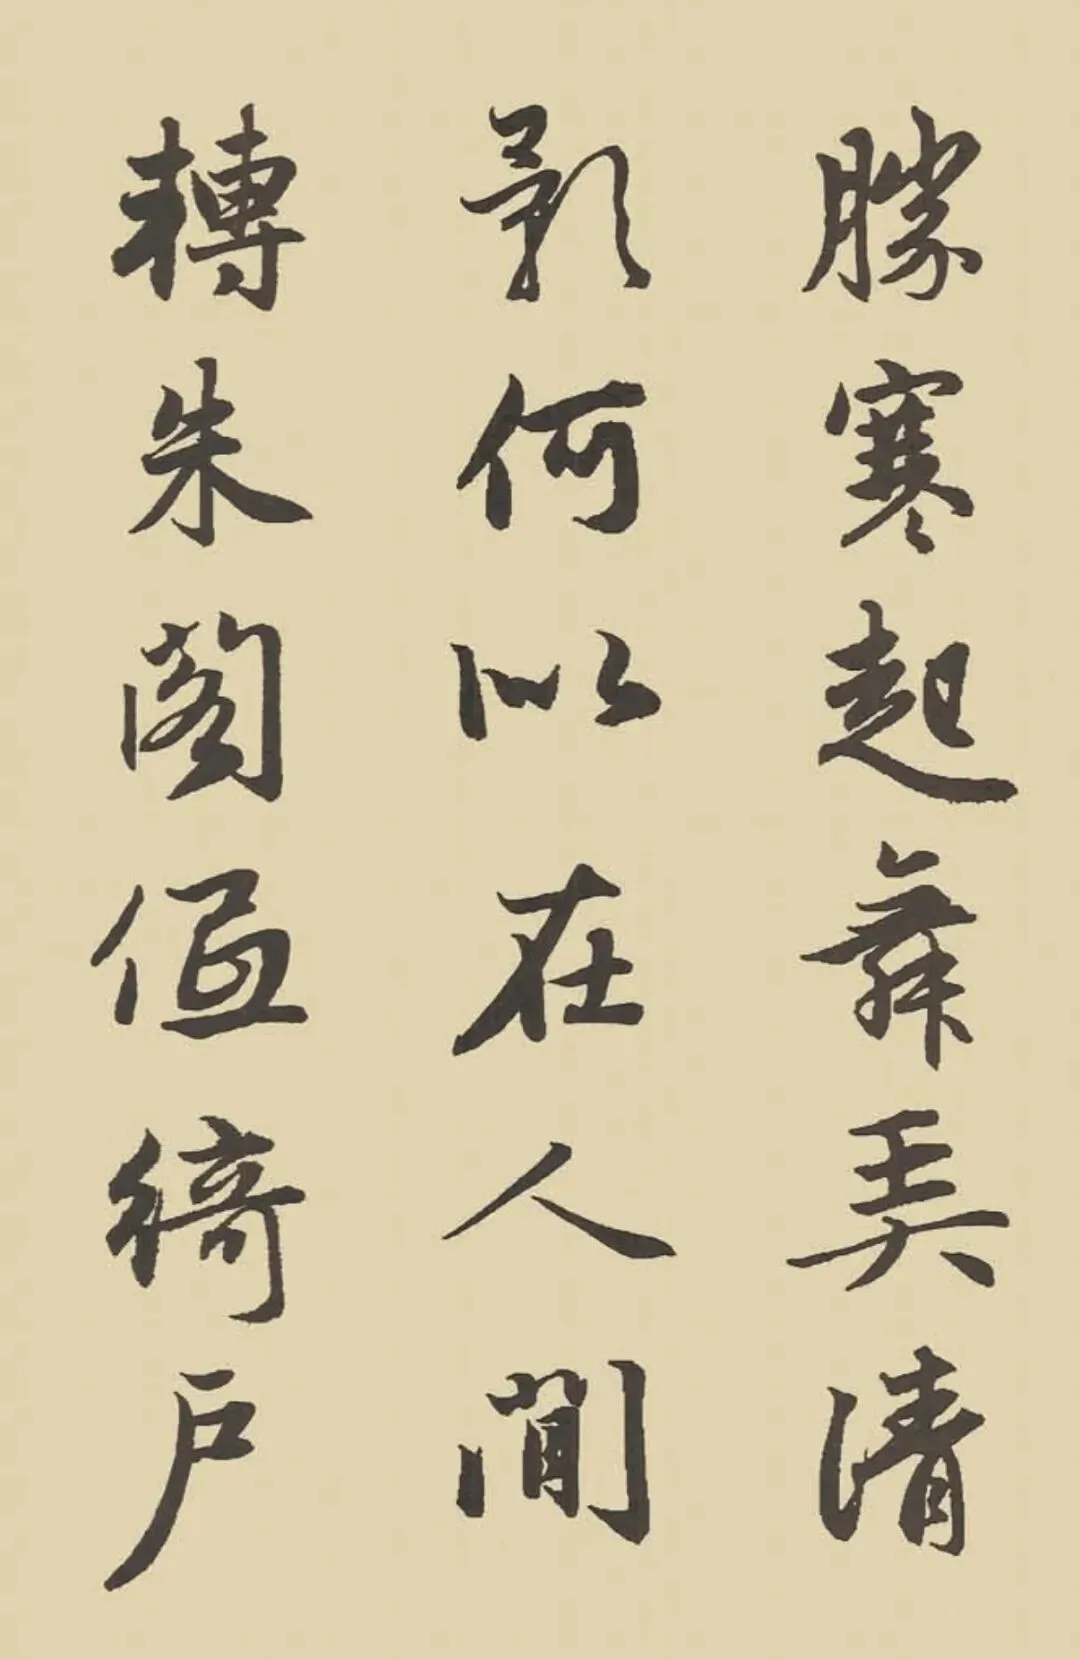 勝寒起舞弄清
影何似在人間
轉朱閣低綺戶